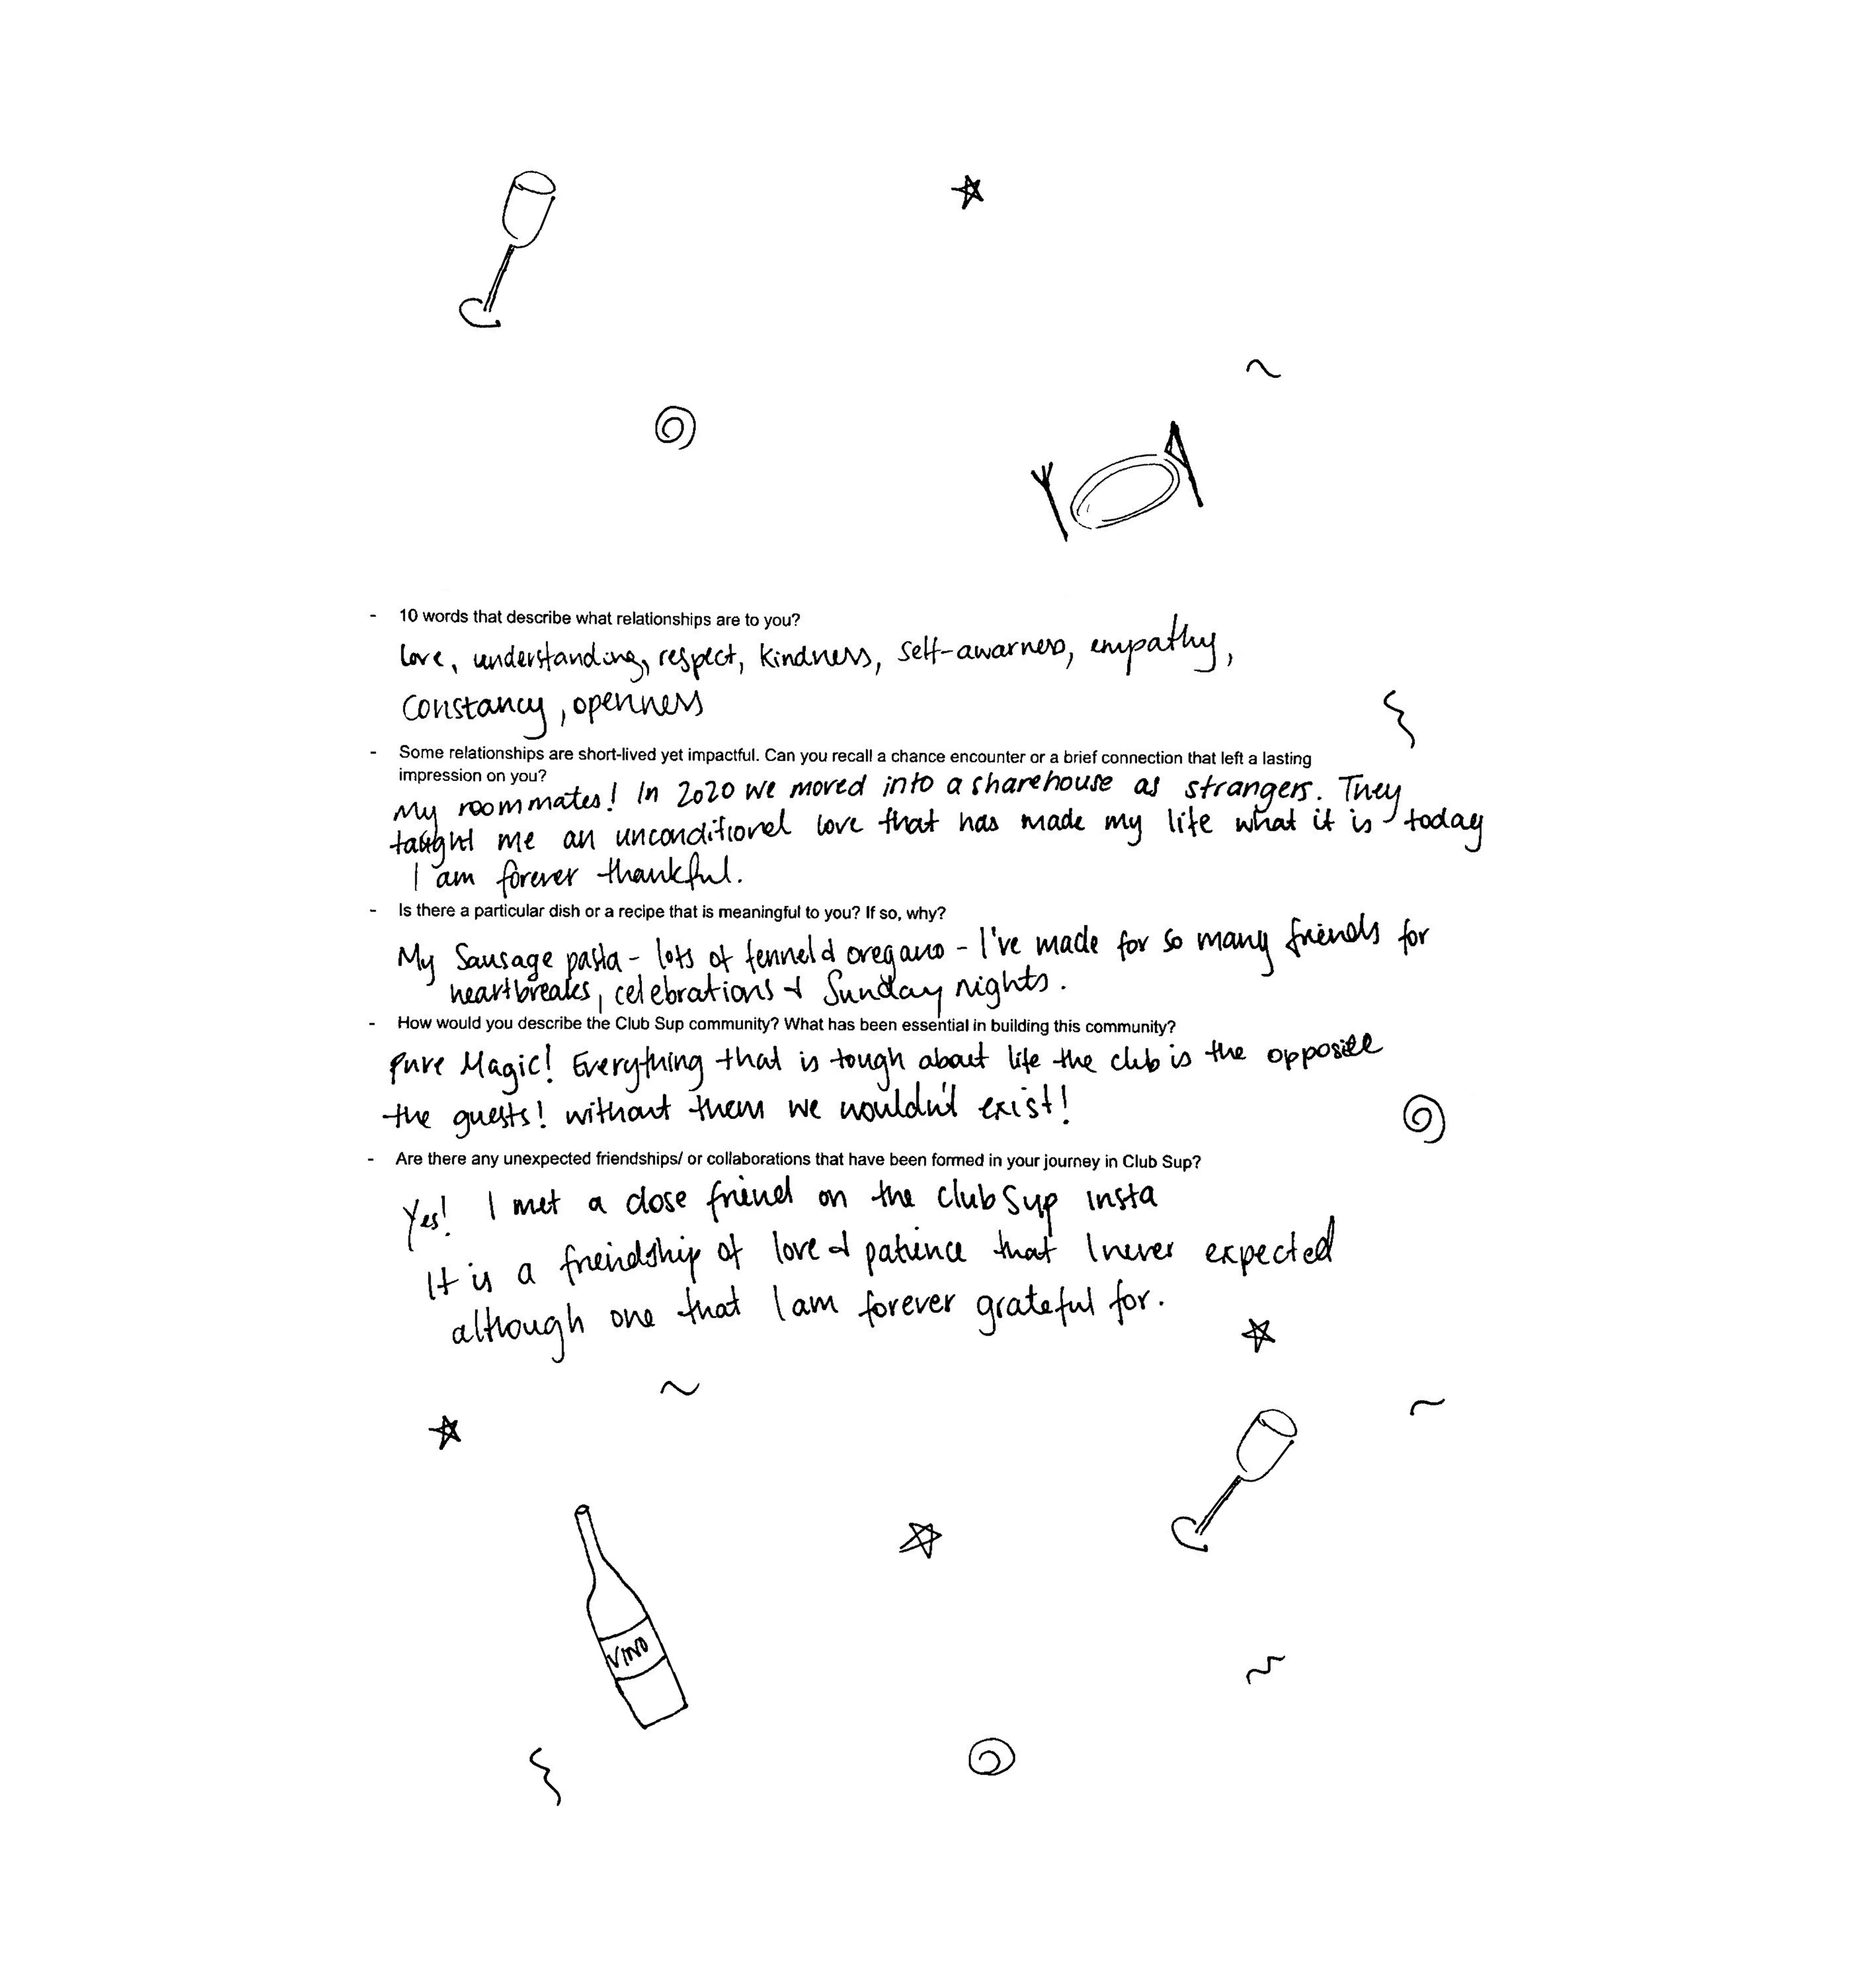 - 10 words that describe what relationships are to you?
love, understanding, respect, kindness, self-awarness, empathy,
constancy, openness
- Some relationships are short-lived yet impactful. Can you recall a chance encounter or a brief connection that left a lasting
impression on you?
My roommates! In 2020 we moved into a sharehouse as strangers. They
taught me an unconditional love that has made my life what it is today
I am forever thankful.
- Is there a particular dish or a recipe that is meaningful to you? If so, why?
My Sausage pasta - lots of fennel & oregano - I've made for so many friends for
heartbreaks, celebrations & Sunday nights.
- How would you describe the Club Sup community? What has been essential in building this community?
Pure Magic! Everything that is tough about life the club is the opposite
the guests! without them we wouldn't exist!
- Are there any unexpected friendships/ or collaborations that have been formed in your journey in Club Sup?
Yes! I met a close friend on the club Sup insta
It is a friendship of love & patience that I never expected
although one that I am forever grateful for.
VINO